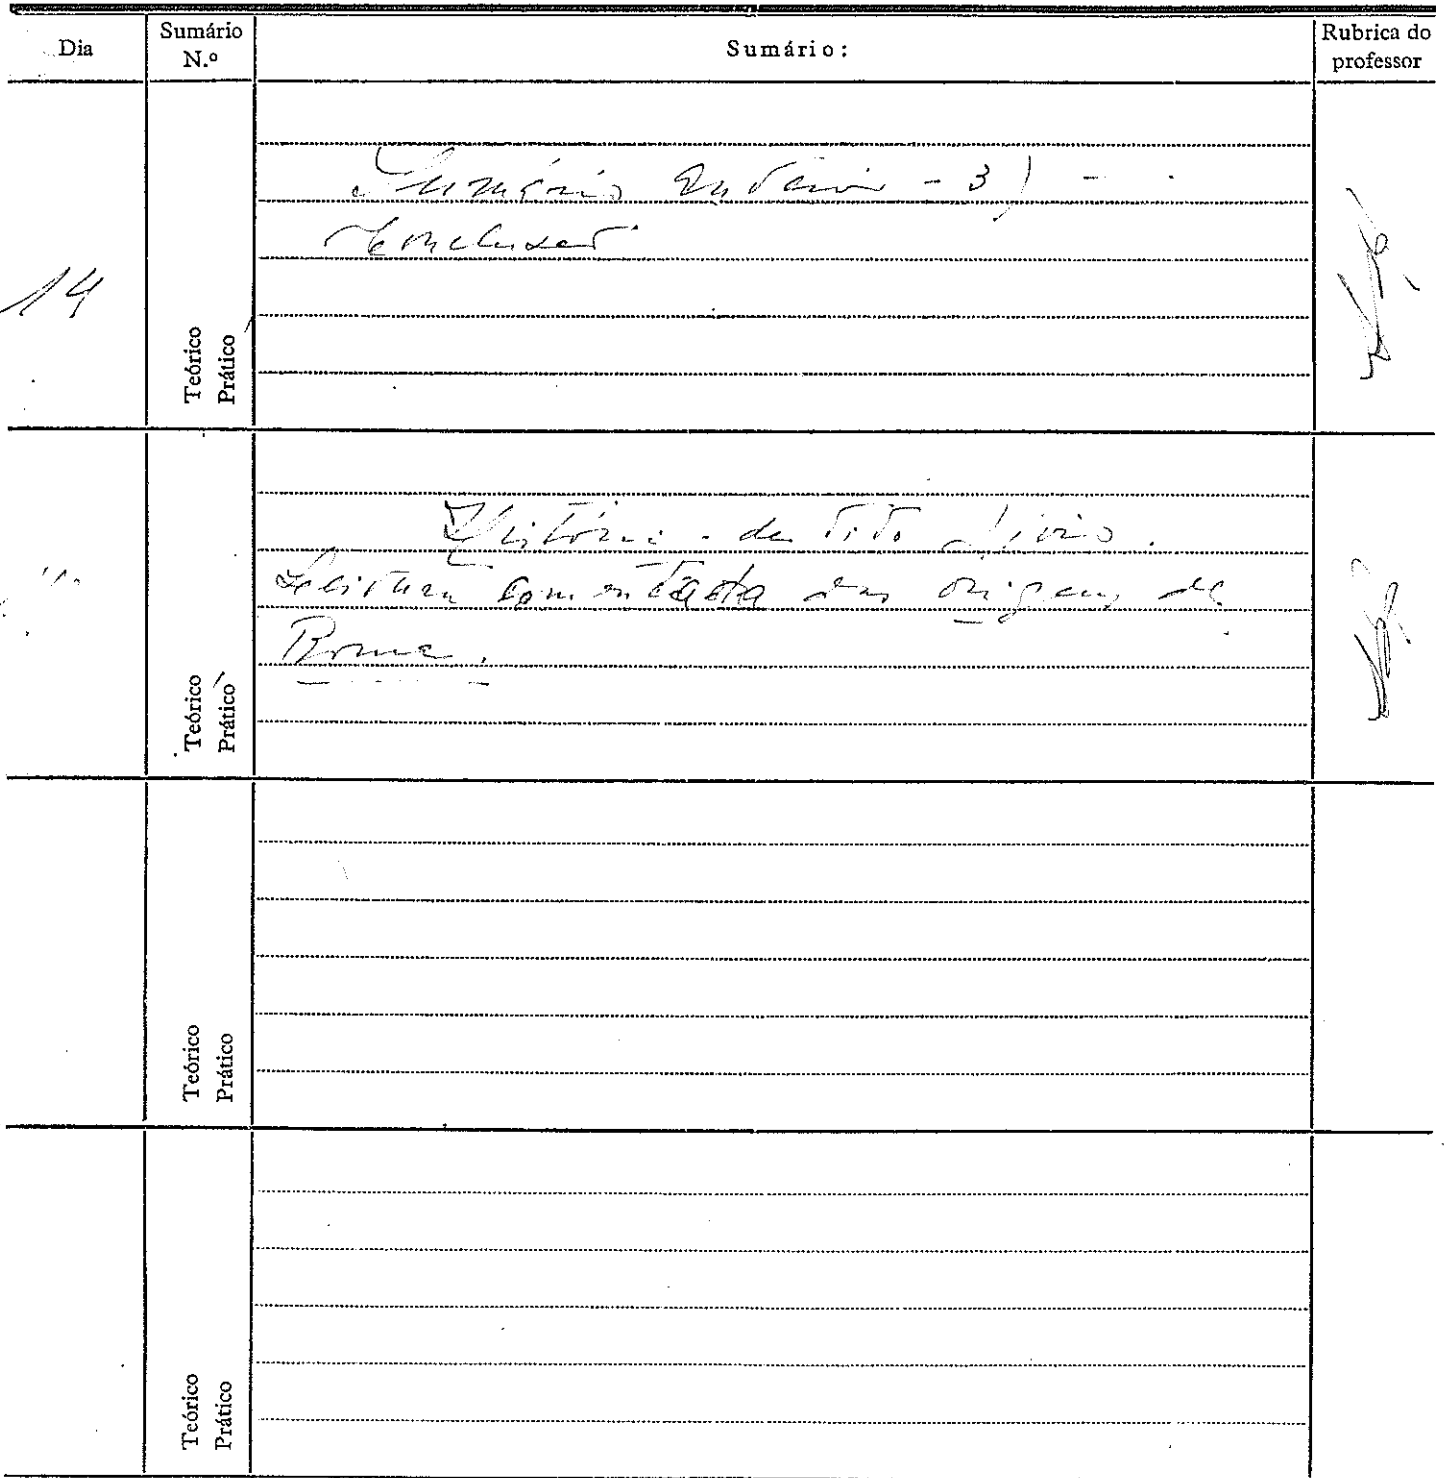 Dia
Sumário N.º
Sumário:
Rubrica do professor
14
Teórico
Prático
Sumário anterior - 3) -
Conclusão
Teórico
Prático
História de Tito Lívio.
Leitura comentada das origens de
Roma.
Teórico
Prático
Teórico
Prático